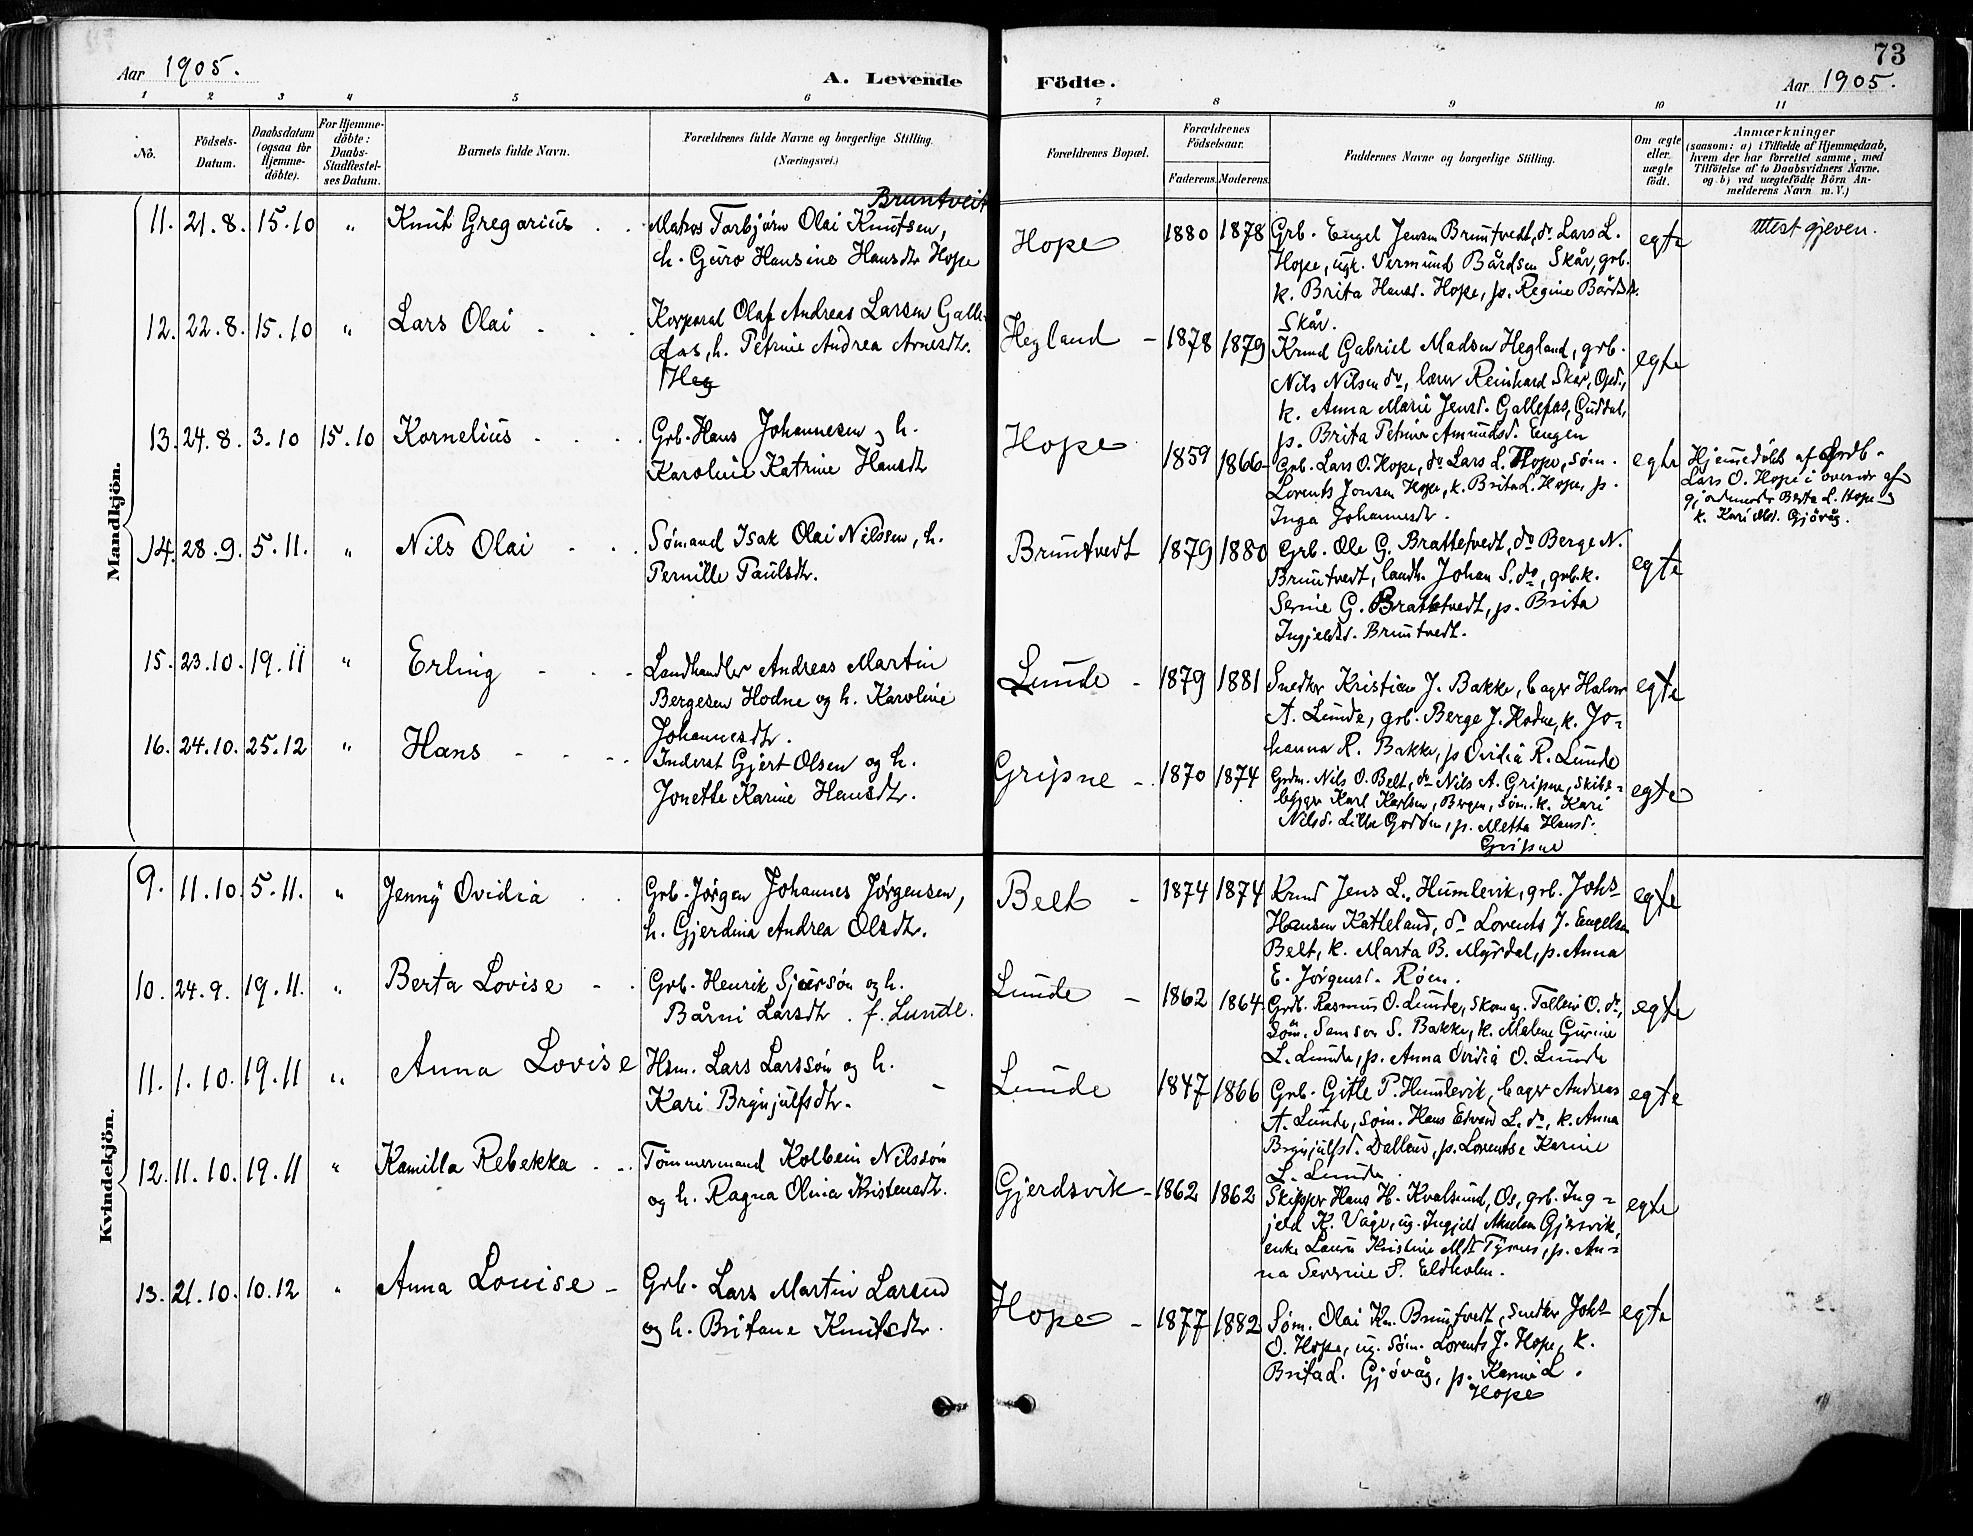 73
Aar 1905. A. Levende Födte. Aar 1905.
1 2 3 4 5 6 7 8 9 10 11
No.
Födsels-
Datum.
Daabsdatum
(ogsaa for
Hjemme-
döbte).
For Hjemme-
döbte:
Daabs-
Stadfæstel-
ses Datum.
Barnets fulde Navn.
Forældrenes fulde Navne og borgerlige Stilling.
(Næringsvei.)
Forældrenes Bopæl.
Forældrenes
Födselsaar.
Faderens. Moderens.
Faddernes Navne og borgerlige Stilling.
Om ægte
eller
uægte
födt.
Anmærkninger
(saasom: a) i Tilfælde af Hjemmedaab,
hvem der har forrettet samme, med
Tilföielse af to Daabsvidners Navne,
og b) ved uægtefödte Börn An-
melderens Navn m. V.)
Mandkjön.
11. 21.8. 15.10 " Knut Gregarius
Bruntveit
Matros Torbjørn Olai Knutsen,
h. Guro Hansine Hansdtr Hope
Hope
1880 1878
Grb. Engel Jensen Bruntvedt, do Lars L.
Hope, ugk. Vermund Bårdsen Skår, grb.
k. Brita Hansd. Hope, p. Regine Bårdsd.
Skår.
egte
Attest gjeven.
12. 22.8. 15.10 " Lars Olai
Korporal Olaf Andreas Larsen Galle-
fos, h. Petrine Andrea Arnesdtr.
Heg
Hegland
1878 1879
Knud Gabriel Madsen Hegland, grb.
Nils Nilsen do, lærer Reinhard Skår, Opd.,
k. Anna Marie Jensd. Gallefos, Guddal,
p. Brita Petrine Amundsd. Engen
egte
13. 24.8. 3.10 15.10 Kornelius
Grb. Hans Johannesen og h.
Karoline Katrine Hansdtr
Hope
1859 1866
Grb. Lars O. Hope, do Lars L. Hope, søm.
Lorents Jonsen Hope, k. Brita L. Hope, p.
Inga Johannesdtr.
egte
Hjemmedöbt af Grdb.
Lars O. Hope i overvær af
gjordmoder Berta L. Hope og
k. Kari Md. Gjövåg.
14. 28.9. 5.11. " Nils Olai
Sømand Isak Olai Nilssen, h.
Pernille Paulsdtr.
Bruntvedt
1879 1880
Grb. Ole G. Brattetvedt, do Berge N.
Bruntvedt, landh. Johan S. do, grb.k.
Serine G. Brattetvedt, p. Brita
Ingjeldsd. Bruntvedt.
egte
15. 23.10. 19.11 " Erling
Landhandler Andreas Martin
Bergesen Hodne og h. Karoline
Johannesdtr.
Lunde
1879 1881
Snedker Kristian J. Bakke, bager Halvor
A. Lunde, grb. Berge J. Hodne, k. Jo-
hanna R. Bakke, p Ovidia R. Lunde
egte
16. 24.10. 25.12 " Hans
Inderst Gjert Olsen og h.
Jonette Karine Hansdtr.
Gripne
1870 1874
Grdm. Nils O. Belt, do Nils A. Gripne, Skibs-
bygger Karl Karlsen, Bergen, Søm. k. Kari
Nilsd. Lille Godøen, p. Metta Hansd.
Gripne
egte
Kvindekjön.
9. 11.10. 5.11. " Jenny Ovidia
Grb. Jørgen Johannes Jørgensen,
h. Gjerdina Andrea Olsdtr.
Belt
1874 1874
Knud Jens L. Humlevik, grb. Johs
Hansen Katteland, do Lorents J. Engelsen
Belt, k. Marta B. Myrdal, p. Anna
E. Jørgensd. Røen.
egte
10. 24.9. 19.11. " Berta Lovise
Grb. Henrik Sjursön og h.
Bårni Larsdtr. f. Lunde.
Lunde
1862 1864
Grdb. Rasmus O. Lunde, Skomag. Tollein O. do,
Söm. Samson S. Bakke, k. Malene Gurine
L. Lunde, p. Anna Ovidia O. Lunde
egte
11. 1.10. 19.11 " Anna Lovise
Hsm. Lars Larssön og h.
Kari Brynjulfsdtr.
Lunde
1847 1866
Grb. Gitle P. Humlevik, bager Andreas
A. Lunde, søm. Hans Edvard L. do, k. Anna
Brynjulfsd. Dalland, p. Lorentse Karine
L. Lunde
egte
12. 11.10. 19.11 " Kamilla Rebekka
Tömmermand Kolbein Nilssön
og h. Ragna Olina Kristensdtr.
Gjerdsvik
1862 1862
Skipper Hans H. Kvalsund, Os, grb. Ing-
jeld K. Våge, ug. Ingjeld Akselsen Gjersvik,
enke Laura Kristine Mdt Tysnes, p. An-
na Severine S. Eldholm.
egte
13. 21.10. 10.12 " Anna Louise
Grb. Lars Martin Larsen
og h. Britane Knutsdtr.
Hope
1877 1882
Søm. Olai Kn. Bruntvedt, snedker Johs
O. Hope, ug. Søm. Lorents J. Hope, k.
Brita L. Gjövåg, p. Karine L.
Hope
egte